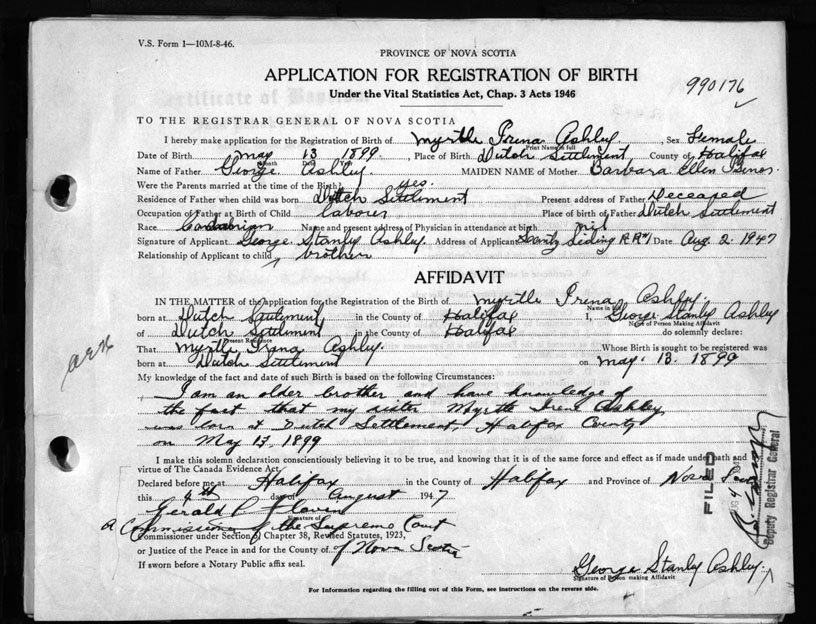 V.S. Form 1—10M-8-46.
PROVINCE OF NOVA SCOTIA
APPLICATION FOR REGISTRATION OF BIRTH
990176
Under the Vital Statistics Act, Chap. 3 Acts 1946
TO THE REGISTRAR GENERAL OF NOVA SCOTIA
I hereby make application for the Registration of Birth of Myrtle Irena Ashley, Sex Female
Print Name in full
Date of Birth May 13 1899, Place of Birth Dutch Settlement County of Halifax
Name of Father George Ashley MAIDEN NAME of Mother Barbara Ellen
Were the Parents married at the time of the Birth yes.
Residence of Father when child was born Dutch Settlement Present address of Father Deceased
Occupation of Father at Birth of Child laborer Place of birth of Father Dutch Settlement
Race Canadian Name and present address of Physician in attendance at birth nil
Signature of Applicant George Stanley Ashley. Address of Applicant Lantz Siding RR#1 Date Aug. 2. 1947
Relationship of Applicant to child brother
AFFIDAVIT
IN THE MATTER of the Application for the Registration of the Birth of Myrtle Irena Ashley
Name in full
born at Dutch Settlement, in the County of Halifax I, George Stanly Ashley
Name of Person Making Affidavit
of Dutch Settlement in the County of Halifax do solemny declare:
Present Residence
That Myrtle Irana Ashley. Whose Birth is sought to be registered was
born at Dutch Settlement on May. 13. 1899
My knowledge of the fact and date of such Birth is based on the following Circumstances:
I am an older brother and have knowledge of
the fact that my sister Myrtle Irene Ashley
was born at Dutch Settlement, Halifax County
on May 13, 1899
I make this solemn declaration conscientiously believing it to be true, and knowing that it is of the same force and effect as if made under oath and
virtue of The Canada Evidence Act.
Declared before me at Halifax in the County of Halifax and Province of Nova
this 4th day of August 1947
Gerald P Flavin
Signature of
A Commissioner of the Supreme Court
Commissioner under Section Chapter 38, Revised Statutes, 1923,
or Justice of the Peace in and for the County of of Nova Scotia
If sworn before a Notary Public affix seal.
George Stanly Ashley.
Signature of Person making Affidavit
For Information regarding the filling out of this Form, see instructions on the reverse side.
FILED
Deputy Registrar General